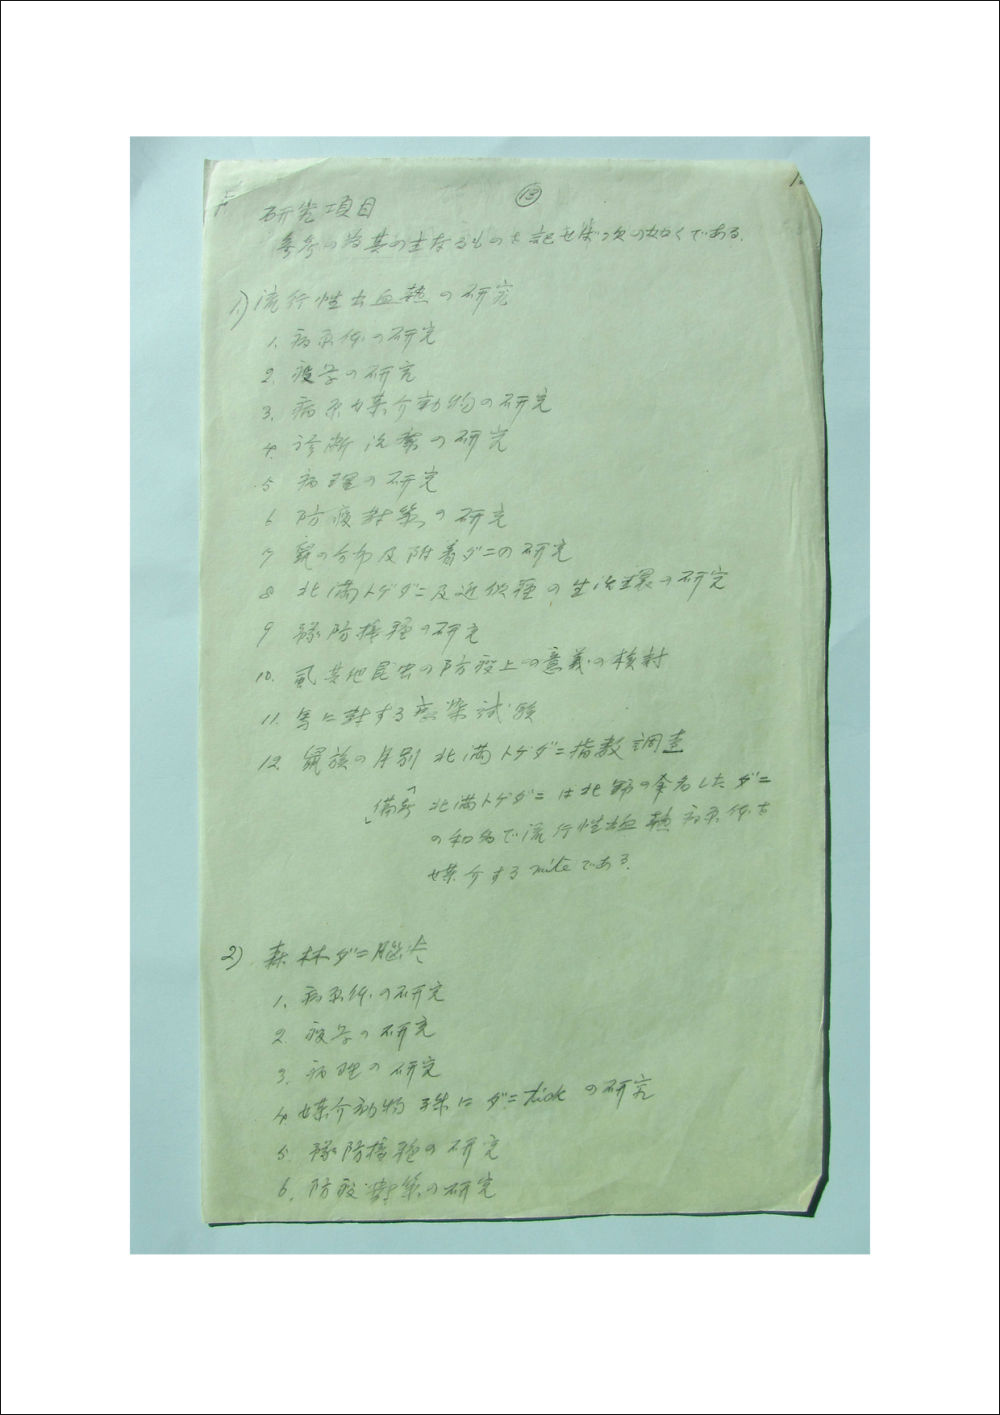 ⑬
研究項目
参考の為其の主なるものを記せば次の如くである.
1) 流行性出血熱の研究
1. 病原体の研究
2. 疫学の研究
3. 病原媒介動物の研究
4. 診断治療の研究
5 病理の研究
6 防疫対策の研究
7 鼠の分布及附着ダニの研究
8 北満トゲダニ及近似種の生活環の研究
9 豫防接種の研究
10. 虱其他昆虫の防疫上の意義の検討
11. 馬に対する感染試験
12. 鼠族の月別北満トゲダニ指数調査
「備考」 北満トゲダニは北野の命名したダニ
の和名で流行性出血熱病原体を
媒介するmiteである.
2) 森林ダニ脳炎
1. 病原体の研究
2. 疫学の研究
3. 病理の研究
4 媒介動物殊にダニtickの研究
5. 豫防接種の研究
6. 防疫対策の研究